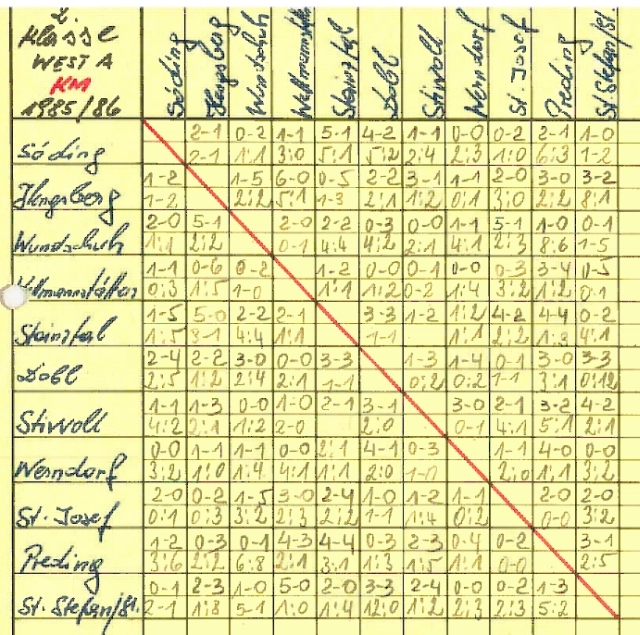 2. Klasse WEST A KM 1985/86 Söding Hengsberg Wundschuh Stainztal Dobl Stiwoll Werndorf St. Josef Preding St. Stefan/St.
2-1 0-2 1-1 5-1 4-2 1-1 0-0 0-2 2-1 1-0
Söding 2-1 1:1 3:0 5:1 5:2 2:4 2:3 1:0 6:3 1-2
1-2 1-5 6-0 0-5 2-2 3-1 1-1 2-0 3-0 3-2
Hengsberg 1-2 2:2 5:1 1-3 2:1 1:2 0:1 3:0 2:2 8:1
2-0 5-1 2-0 2-2 0-3 0-0 1-1 5-1 1-0 0-1
Wundschuh 1:1 2:2 0-1 4:4 4:2 2:1 4:1 2:3 8:6 1-5
1-1 0-6 0-2 1-2 0-0 0-1 0-0 0-3 3-4 0-5
0:3 1:5 1-0 1:1 1:2 0-2 1:4 3:2 1:2 0:1
1-5 5-0 2-2 2-1 3-3 1-2 1:2 4-2 4-4 0-2
Stainztal 1:5 3-1 4:4 1:1 1-1 1:1 2:2 1:3 4:1
2-4 2-2 3-0 0-0 3-3 1-3 1-4 0-1 3-0 3-3
Dobl 2:5 1:2 2:4 2:1 1-1 0:2 0:2 1-1 3:1 0:12
1-1 1-3 0-0 1-0 2-1 3-1 3-0 2-1 3-2 4-2
Stiwoll 4:2 2:1 1:2 2-0 2:0 0-1 4:1 5:1 2:1
0-0 1-1 1-1 0-0 2:1 4-1 0-3 1-1 4-0 0-0
Werndorf 3:2 1:0 1:4 4:1 1:1 2:0 1-0 2:0 1:1 3:2
2-0 0-2 1-5 3-0 2-4 1-0 1-2 1-1 2-0 2-0
St. Josef 0:1 0:3 3:2 2:3 2:2 1-1 1:4 0:2 0-0 3:2
1-2 0-3 0-1 4-3 4-4 0-3 2-3 0-4 0-2 3-1
Preding 3:6 2:2 6:8 2:1 3:1 1:3 1:5 1:1 0-0 2:5
0-1 2-3 1-0 5-0 2-0 3-3 2-4 0-0 0-2 1-3
St. Stefan/St. 2-1 1:8 5-1 1:0 1:4 12:0 1:2 2:3 2:3 5:2